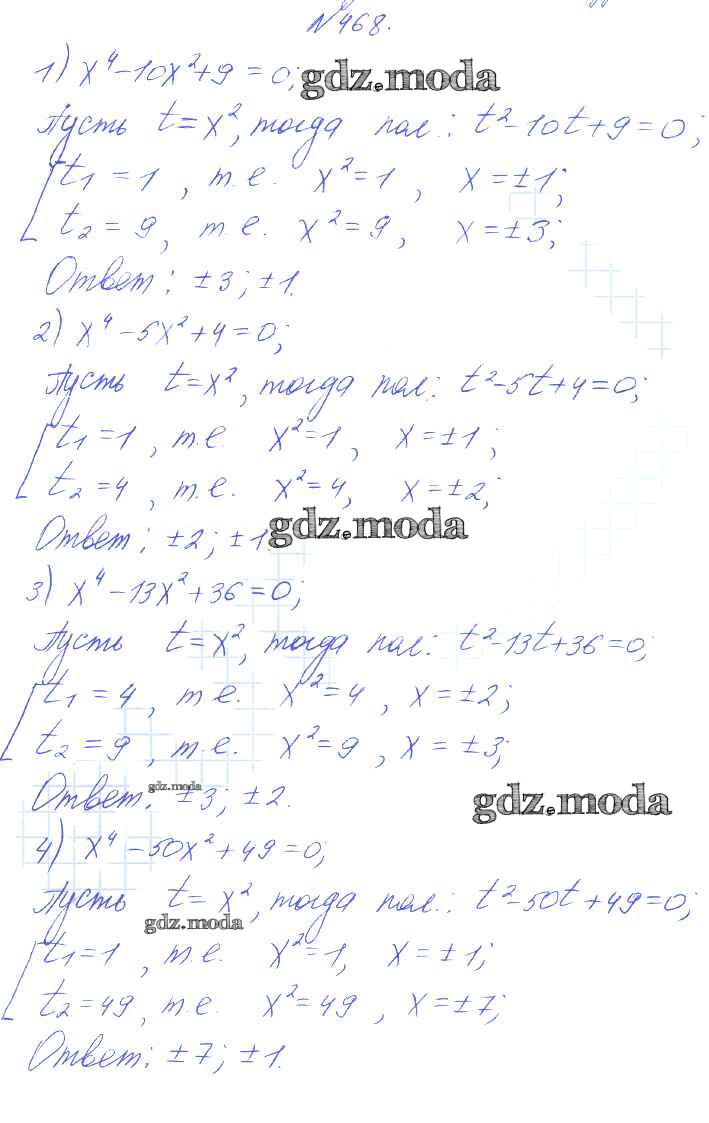 №468.
1) x⁴-10x²+9=0; gdz.moda
Пусть t=x², тогда пол.: t²-10t+9=0;
[t₁=1, т.е. x²=1, x=±1;
t₂=9, т.е. x²=9, x=±3;
Ответ: ±3; ±1.
2) x⁴-5x²+4=0;
Пусть t=x², тогда пол.: t²-5t+4=0;
[t₁=1, т.е. x²=1, x=±1;
t₂=4, т.е. x²=4, x=±2;
Ответ: ±2; ±1. gdz.moda
3) x⁴-13x²+36=0;
Пусть t=x², тогда пол: t²-13t+36=0;
[t₁=4, т.е. x²=4, x=±2;
t₂=9, т.е. x²=9, x=±3;
gdz.moda
Ответ: ±3; ±2. gdz.moda
4) x⁴-50x²+49=0;
Пусть t=x², тогда пол.: t²-50t+49=0;
gdz.moda
[t₁=1, т.е. x²=1, x=±1;
t₂=49, т.е. x²=49, x=±7;
Ответ: ±7; ±1.